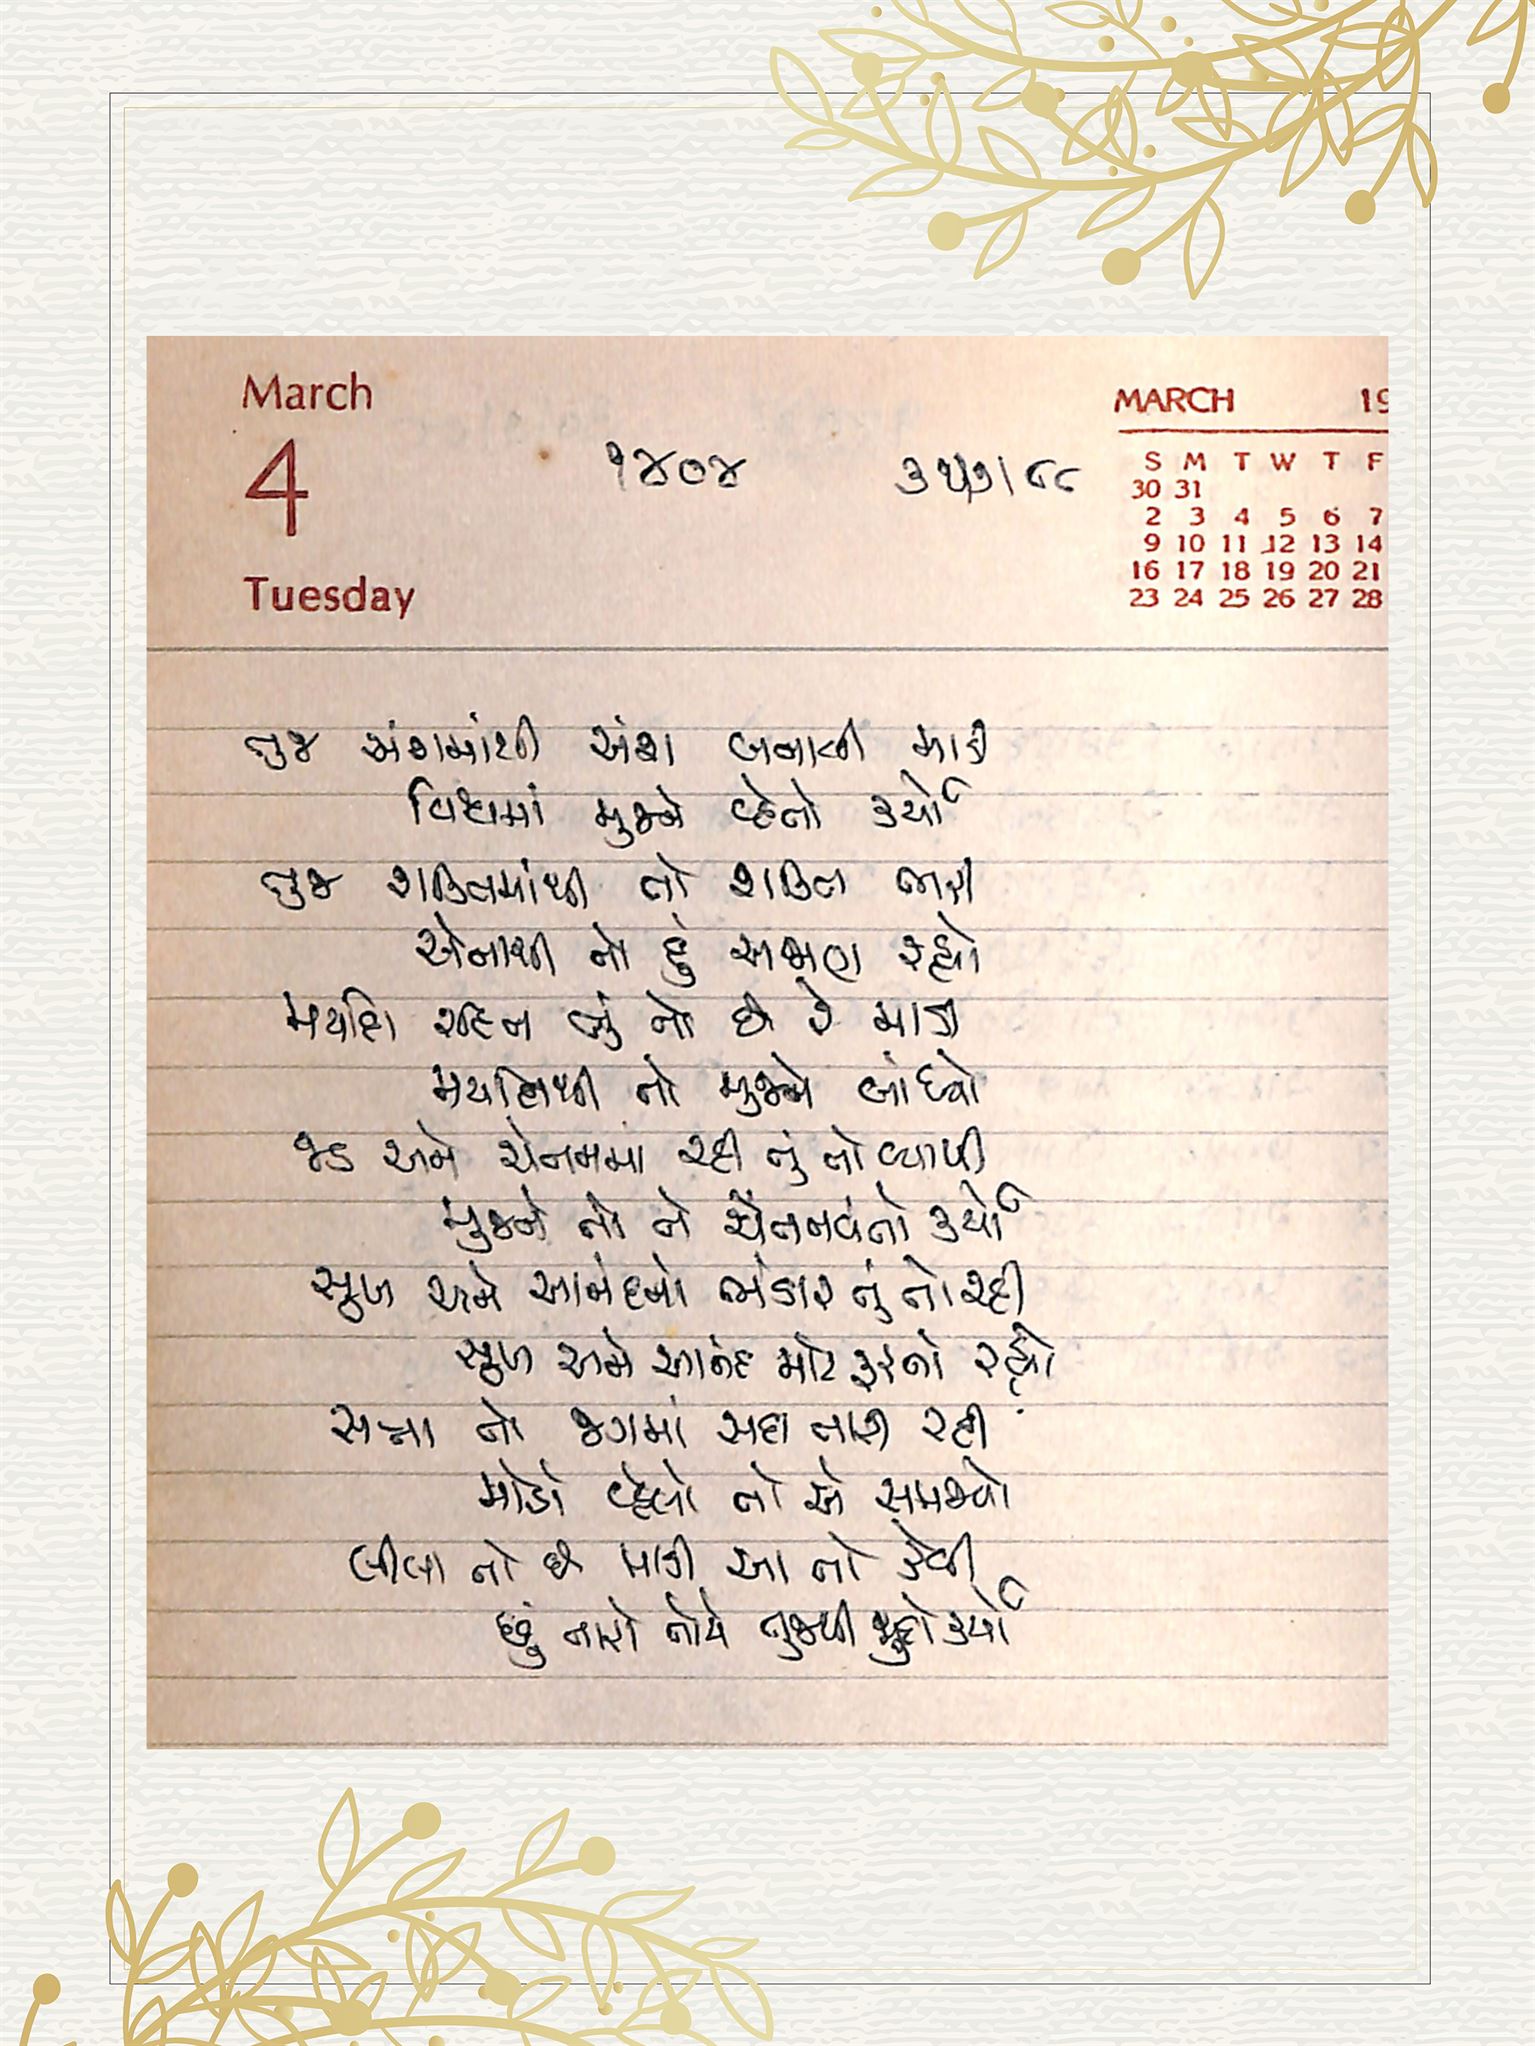 March
4
Tuesday
૧૪૦૪
MARCH 19
S M T W T F
30 31
2 3 4 5 6 7
9 10 11 12 13 14
16 17 18 19 20 21
23 24 25 26 27 28
તુજ અંશમાંથી અંશ બનાવી માડી
વિશ્વમાં મુજને વ્હેતો કર્યો
તુજ શક્તિમાંથી તો શક્તિ તારી
એનાથી તો હું અજાણ રહ્યો
મર્યાદા રહિત તું તો છે રે માડી
મર્યાદાથી તો મુજને બાંધ્યો
જડ અને ચેતનમાં રહી તું તો વ્યાપી
મુજને તો તે ચેતનવંતો કર્યો
સુખ અને આનંદનો ભંડાર તું તો રહી
સુખ અને આનંદ માટે ફરતો રહ્યો
સત્તા તો જગમાં સદા તારી રહી
મોડો વ્હેલો તો એ સમજ્યો
લીલા તો છે માડી આ તો કેવી
છું તારો તોયે તુજથી જુદો કર્યો